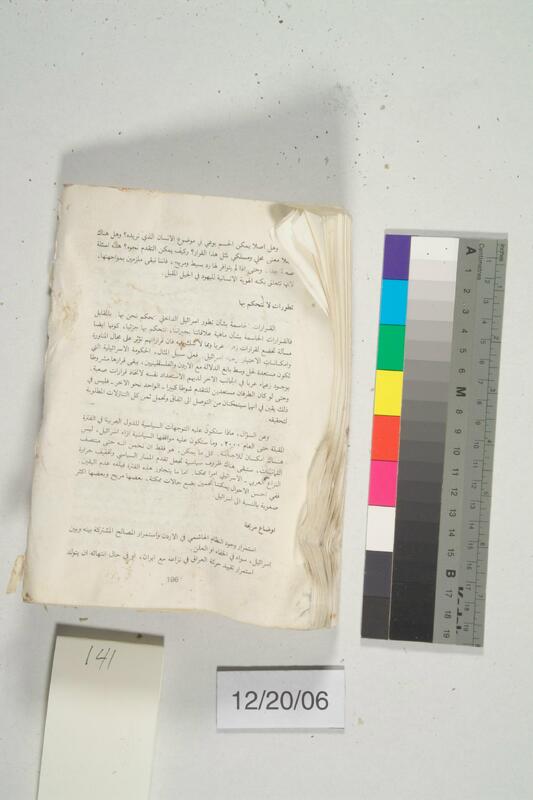 وهل اصلا يمكن الحسم بوعي او موضوع الانسان الذي نريده؟ وهل هناك
معنى عملي ومسلكي لمثل هذا القرار؟ وكيف يمكن التقدم نحوه؟ هذه اسئلة
وحتى اذا لم يتوافر لها رد بسيط ومريح، فاننا نبقى ملزمين بمواجهتها،
لانها تتعلق بكنه الهوية الانسانية لليهود في الجيل المقبل.
تطورات لا نتحكم بها
القرارات الحاسمة بشأن تطور اسرائيل الداخلي نتحكم نحن بها. بالمقابل
فالقرارات الحاسمة بشأن ماهية علاقاتنا بجيراننا، نتحكم بها جزئيا، كونها ايضا
مسألة تخضع لقرارات
وامكانات الاختيار اسرائيل. فعلى سبيل المثال، الحكومة الاسرائيلية التي
تكون مستعدة لحل وسط بالغ الدلالة مع الاردن والفلسطينيين، يبقى قرارها مشروطا
بوجود زعماء عرب في الجانب الآخر لديهم الاستعداد نفسه لاتخاذ قرارات صعبة.
وحتى لو كان الطرفان مستعدين للتقدم شوطا كبيرا، الواحد نحو الآخر، فليس في
ذلك يقين في انهما سيتمكنان من التوصل الى اتفاق وتحمل ثمن كل التنازلات المطلوبة
لتحقيقه.
وعن السؤال، ماذا ستكون عليه التوجهات السياسية للدول العربية في الفترة
المقبلة حتى العام ٢٠٠٠، وما ستكون عليه مواقفها السياسية ازاء اسرائيل، ليس
هنالك امكان للاجابة. كل ما يمكن، هو فقط ان نخمن انه حتى منتصف
التسعينات، ستبقى هناك ظروف سياسية تجعل تقدم المسار السياسي وتخفيف حرارة
النزاع العربي - الاسرائيلي امرا ممكنا. اما ما يتجاوز هذه الفترة فيلفه عدم اليقين.
ففي احسن الاحوال يمكننا التخمين بضع حالات ممكنة، بعضها مريح وبعضها اكثر
صعوبة بالنسبة الى اسرائيل.
اوضاع مريحة
استمرار وجود النظام الهاشمي في الاردن واستمرار المصالح المشتركة بينه وبين
اسرائيل، سواء في الخفاء او العلن.
استمرار تقييد حركة العراق في نزاعه مع ايران، او في حال انتهائه ان يتولد
196
141
12/20/06
inches
Centimetres
A
M
B